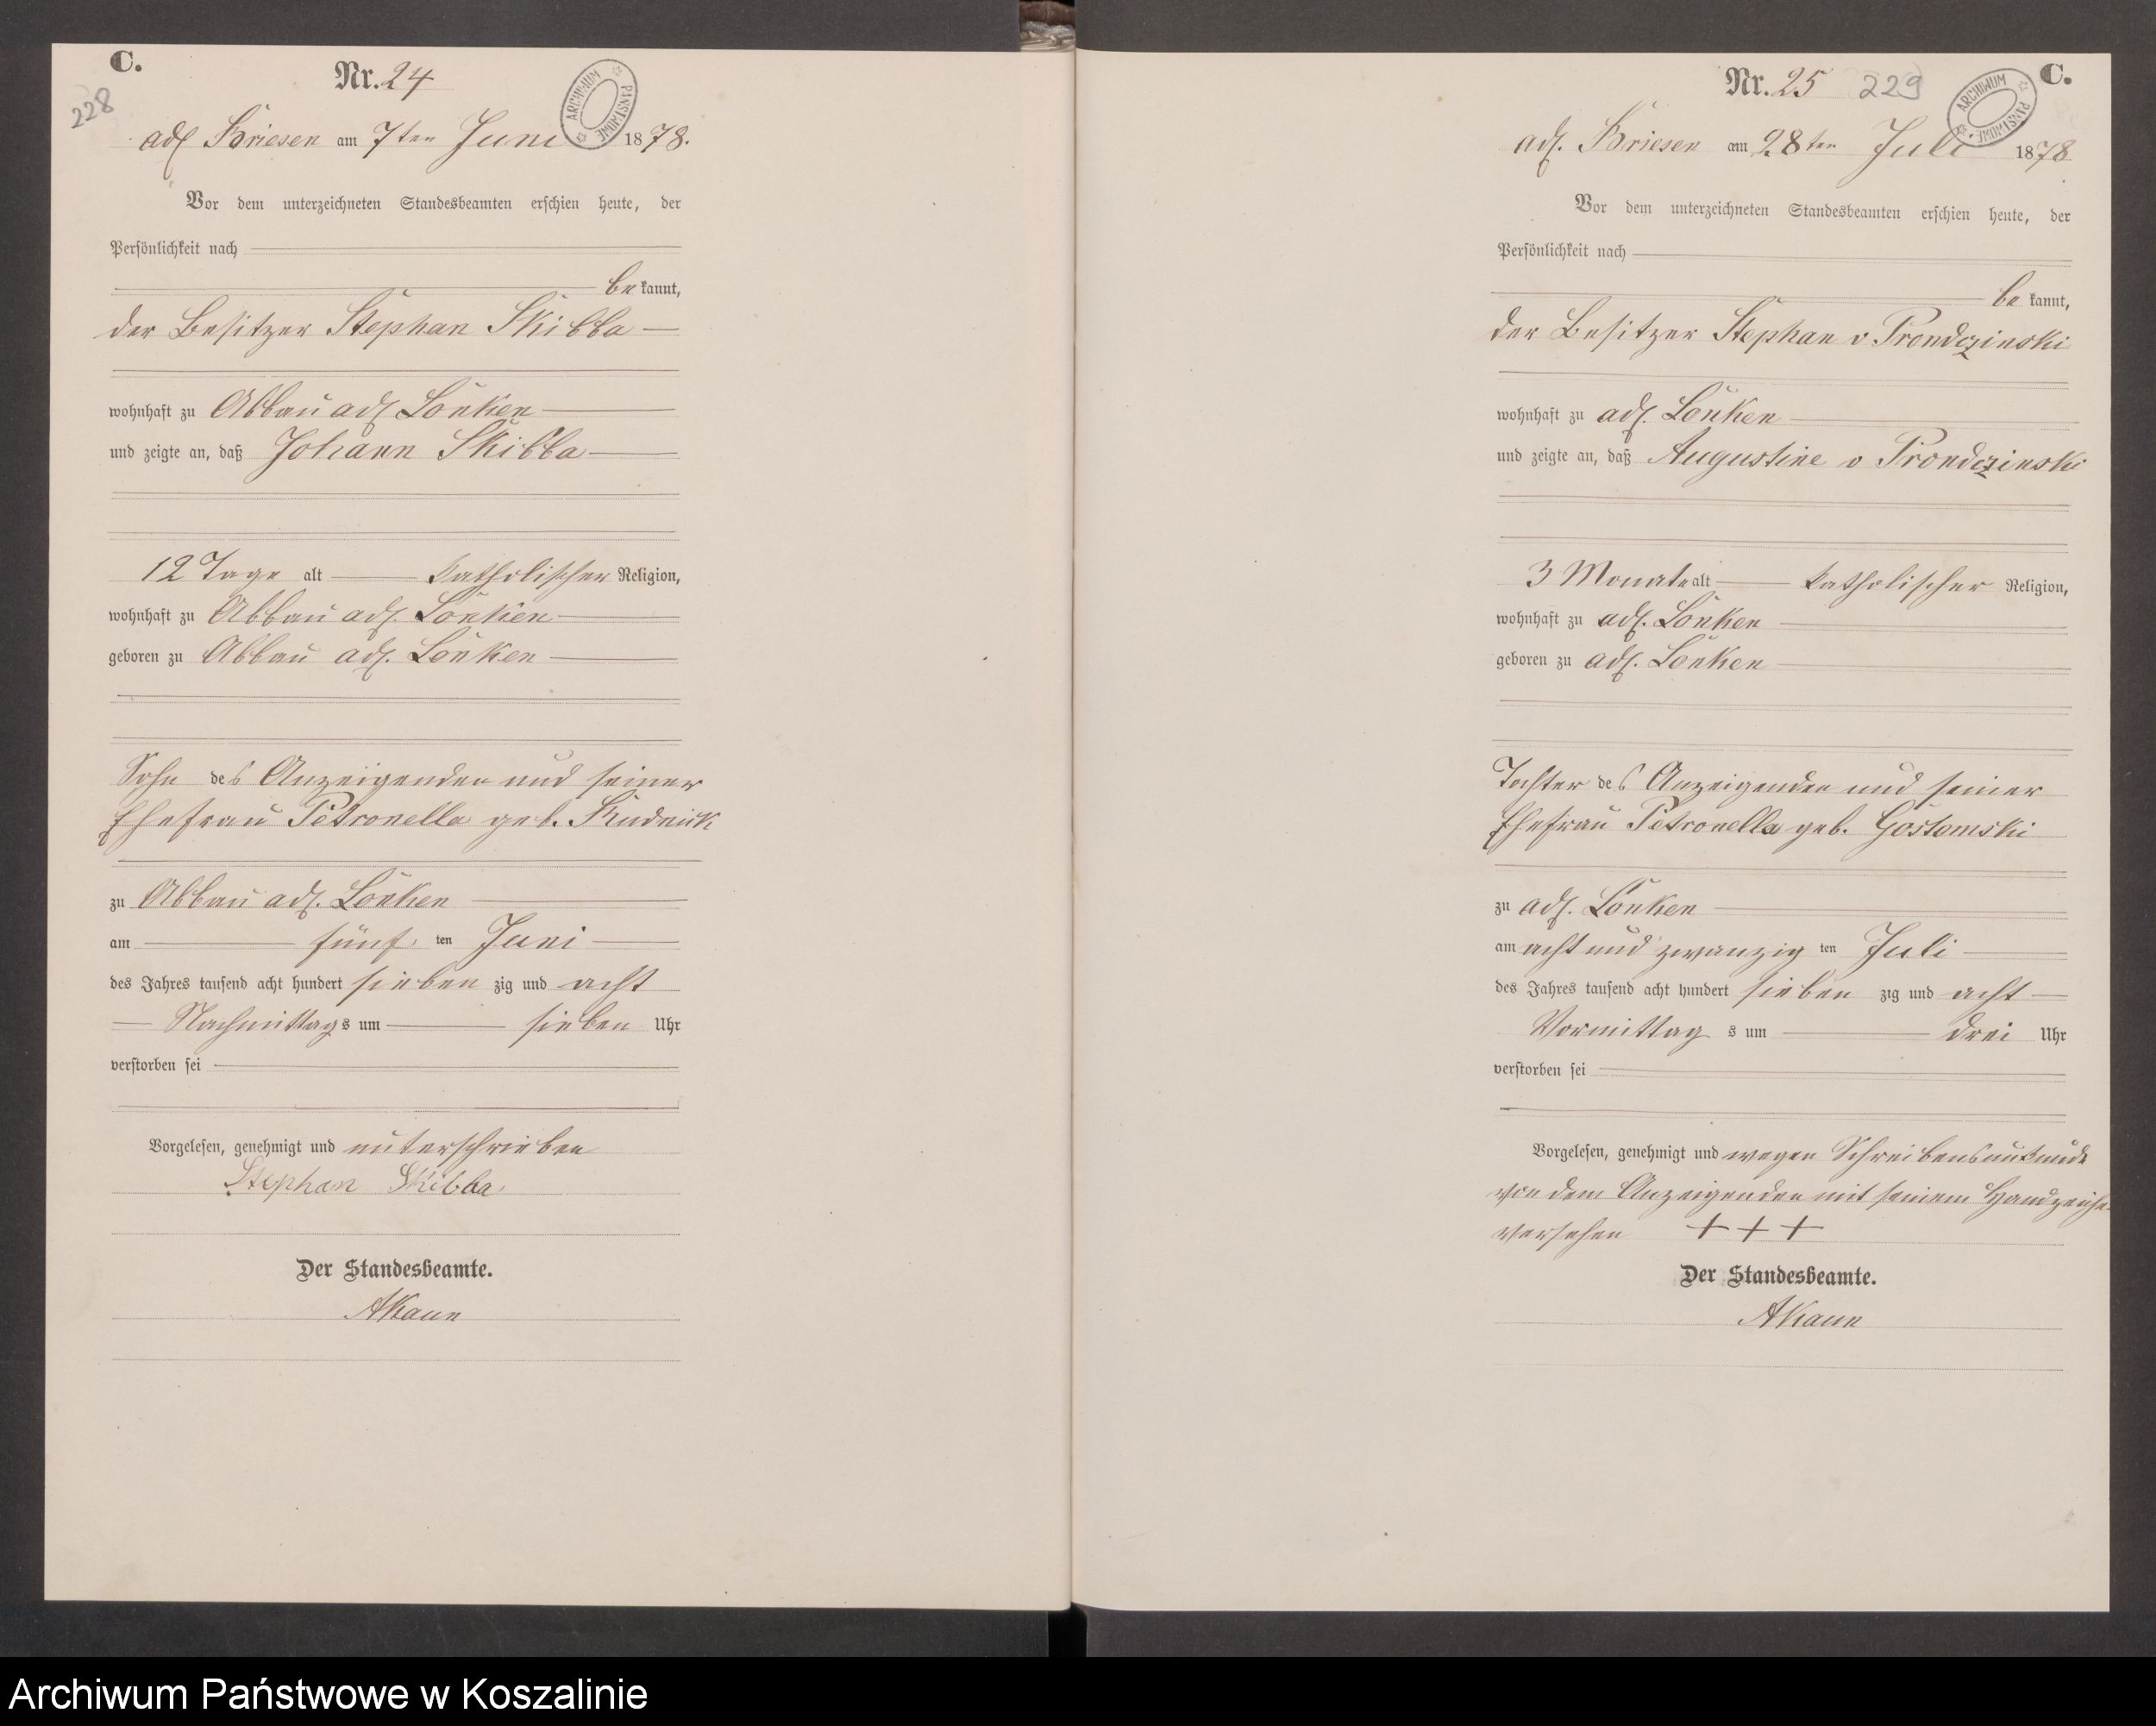 C.
228
Nr. 24
ARCHIWUM PAŃSTWOWE
adl Briesen am 7ten Juni 1878.
Vor dem unterzeichneten Standesbeamten erschien heute, der
Persönlichkeit nach
be kannt,
der Besitzer Stephan Skibba
wohnhaft zu Abbau adl Lonken
und zeigte an, daß Johann Skibba
12 Tage alt katholischer Religion,
wohnhaft zu Abbau adl. Lonken
geboren zu Abbau adl. Lonken
Sohn des Anzeigenden und seiner
Ehefrau Petronella geb. Rudnick
zu Abbau adl. Lonken
am fünf ten Juni
des Jahres tausend acht hundert sieben zig und acht
Nachmittags um sieben Uhr
verstorben sei
Vorgelesen, genehmigt und unterschrieben
Stephan Skibba
Der Standesbeamte.
AKaun
C.
Nr. 25 229
ARCHIWUM PAŃSTWOWE
adl. Briesen am 28ten Juli 1878
Vor dem unterzeichneten Standesbeamten erschien heute, der
Persönlichkeit nach
be kannt,
der Besitzer Stephan v Prondzinski
wohnhaft zu adl. Lonken
und zeigte an, daß Augustine v Prondzinski
3 Monate alt katholischer Religion,
wohnhaft zu adl. Lonken
geboren zu adl. Lonken
Tochter des Anzeigenden und seiner
Ehefrau Petronella geb. Gostomski
zu adl. Lonken
am acht und zwanzig ten Juli
des Jahres tausend acht hundert sieben zig und acht
Vormittag s um drei Uhr
verstorben sei
Vorgelesen, genehmigt und wegen Schreibensunkunde
von dem Anzeigenden mit seinem Handzeichen
versehen + + +
Der Standesbeamte.
AKaun
Archiwum Państwowe w Koszalinie